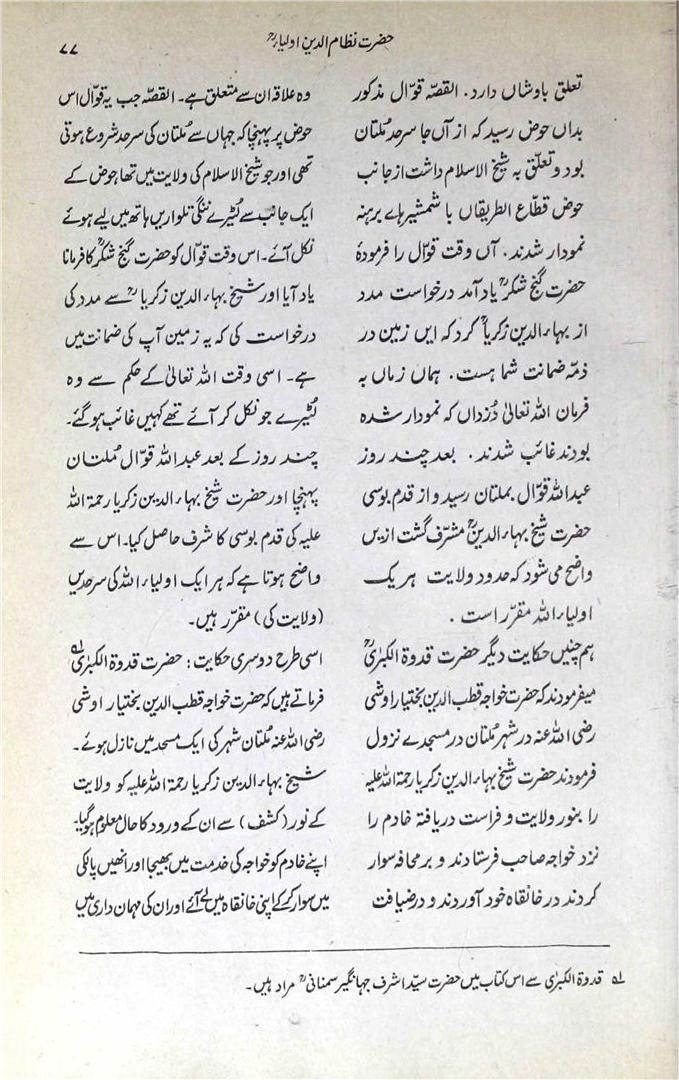 حضرت نظام الدین اولیاءؒ
۷۷
تعلق باوشاں دارد. القصّہ قوّال مذکور
بداں حوض رسید کہ از آں جا سرحد مُلتان
بود و تعلّق بہ شیخ الاسلام داشت از جانب
حوض قطّاع الطریقاں با شمشیر ہاے برہنہ
نمودار شدند. آں وقت قوّال را فرمودۂ
حضرت گنج شکرؒ یاد آمد درخواست مدد
از بہاء الدین زکریاؒ کرد کہ ایں زمین در
ذمّہ ضمانت شما ہست. ہماں زماں بہ
فرمان اللہ تعالیٰ دُزداں کہ نمودار شدہ
بودند غائب شدند. بعد چند روز
عبداللہ قوّال بملتان رسید و از قدم بوسی
حضرت شیخ بہاء الدینؒ مشرّف گشت ازیں
واضح می شود کہ حدود ولایت ہر یک
اولیاء اللہ مقرّر است.
ہم چنیں حکایت دیگر حضرت قدوۃ الکبریٰؒ
میفرمودند کہ حضرت خواجہ قطب الدین بختیار اوشی
رضی اللہ عنہ در شہر مُلتان در مسجدے نزول
فرمودند حضرت شیخ بہاء الدین زکریا رحمۃ اللہ علیہ
را بنور ولایت و فراست دریافتہ خادم را
نزد خواجہ صاحب فرستادند و بر محافہ سوار
کردند در خانقاہ خود آوردند و در ضیافت
وہ علاقہ ان سے متعلق ہے۔ القصّہ جب یہ قوّال اس
حوض پر پہنچا کہ جہاں سے مُلتان کی سرحد شروع ہوتی
تھی اور جو شیخ الاسلام کی ولایت میں تھا حوض کے
ایک جانب سے لُٹیرے ننگی تلواریں ہاتھ میں لیے ہوئے
نکل آئے۔ اس وقت قوّال کو حضرت گنج شکرؒ کا فرمانا
یاد آیا اور شیخ بہاء الدین زکریاؒ سے مدد کی
درخواست کی کہ یہ زمین آپ کی ضمانت میں
ہے۔ اسی وقت اللہ تعالیٰ کے حکم سے وہ
لُٹیرے جو نکل کر آئے تھے کہیں غائب ہو گئے۔
چند روز کے بعد عبداللہ قوّال مُلتان
پہنچا اور حضرت شیخ بہاء الدین زکریا رحمۃ اللہ
علیہ کی قدم بوسی کا شرف حاصل کیا۔ اس سے
واضح ہوتا ہے کہ ہر ایک اولیاء اللہ کی سرحدیں
(ولایت کی) مقرّر ہیں۔
اسی طرح دوسری حکایت: حضرت قدوۃ الکبریٰ ؎۱
فرماتے ہیں کہ حضرت خواجہ قطب الدین بختیار اوشی
رضی اللہ عنہ مُلتان شہر کی ایک مسجد میں نازل ہوئے۔
شیخ بہاء الدین زکریا رحمۃ اللہ علیہ کو ولایت
کے نور (کشف) سے ان کے ورود کا حال معلوم ہو گیا۔
اپنے خادم کو خواجہ کی خدمت میں بھیجا اور انھیں پالکی
میں سوار کر کے اپنی خانقاہ میں لے آئے اور ان کی مہمان داری میں
؎۱ قدوۃ الکبریٰ سے اس کتاب میں حضرت سیّد اشرف جہانگیر سمنانیؒ مراد ہیں۔